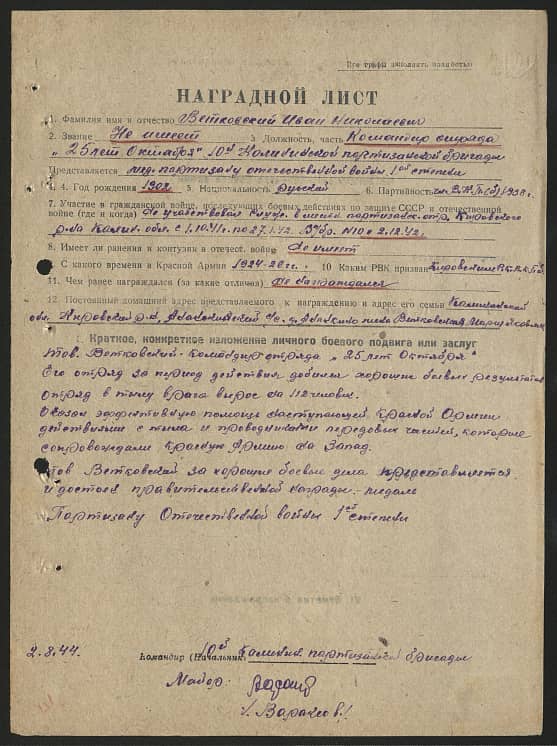 Все графы заполнять полностью
НАГРАДНОЙ ЛИСТ
1. Фамилия имя и отчество Ветковский Иван Николаевич
2. Звание Не имеет 3. Должность, часть Командир отряда
"25 лет Октября" 10ой Калининской партизанской бригады
Представляется мед. партизану отечественной войны 1ой степени
4. Год рождения 1902 5. Национальность русский 6. Партийность чл. В.К.П.(б) 1938 г.
7. Участие в гражданской войне, последующих боевых действиях по защите СССР и отечественной
войне (где и когда) Не участвовал
р-на Калин. обл. с 1.10.41 по 27.1.42. В 10 с 2.12.42.
8. Имеет ли ранения и контузия в отечест. войне Не имеет
9. С какого времени в Красной Армии 1924-26 гг. 10 Каким РВК призван Кировским
11. Чем ранее награждался (за какие отличия) Не награждался
12. Постоянный домашний адрес представляемого к награждению и адрес его семьи Калининской
обл. Кировский р-н,
I. Краткое, конкретное изложение личного боевого подвига или заслуг
Тов. Ветковский - командир отряда "25 лет Октября"
Его отряд за период действия добился хороших боевых результатов
отряд в тылу врага вырос на 112 человек.
Оказал эффективную помощь наступающей красной Армии
действиями с тыла и проводниками передовых частей, которые
сопровождали Красную Армию на Запад.
Тов Ветковский за хорошие боевые дела представляется
и достоен правительственной награды - медаль
Партизану Отечественной войны 1ой степени
2.8.44. Командир (Начальник) 10ой Калинин. партизанской бригады
Майор
/. Вараксов./